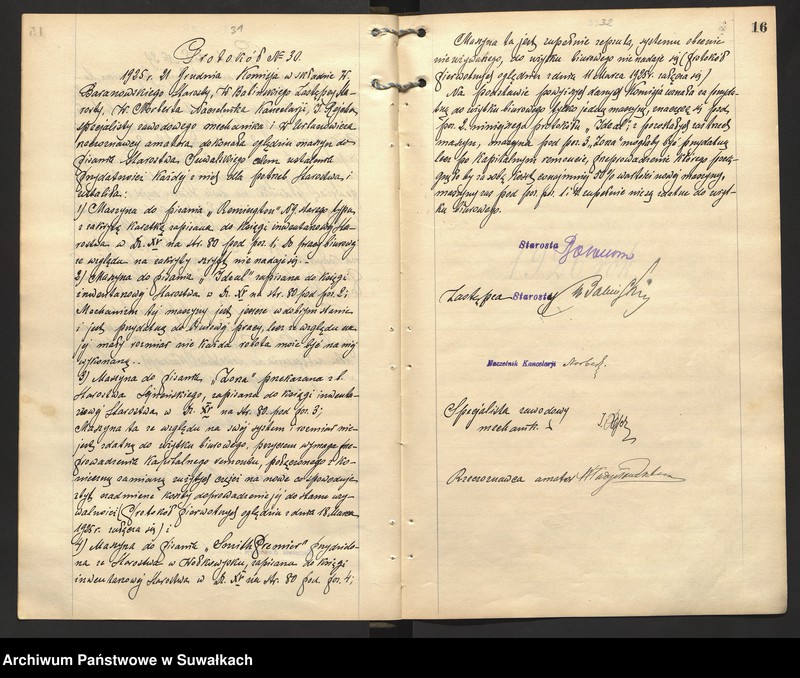 31
Protokół № 30.
1925 r. 21 Grudnia Komisja w składzie W.
Baranowskiego Starosty, W. Balińskiego Zastępcy Sta-
rosty, W. Naczelnika Kancelarji, J.
specjalisty zawodowego mechanika i W.
rzeczoznawcy amatora, dokonała oględzin maszyn do
pisania Starostwa Suwalskiego celem ustalenia
przydatności każdej z nich dla potrzeb Starostwa, i
ustaliła:
1) Maszyna do pisania „Remington" № 7 starego typu,
z zakrytą karetką zapisana do księgi inwentarzowej Sta-
rostwa w R. XV na str. 80 pod poz. 1; do pracy biurowej
ze względu na zakryty szryft nie nadaje się.
2) Maszyna do pisania „Ideal" zapisana do księgi
inwentarzowej Starostwa w R. XV na str. 80 pod poz. 2;
Mechanizm tej maszyny jest jeszcze w dobrym stanie
i jest przydatną do biurowej pracy, lecz ze względu na
jej mały rozmiar nie każda robota może być na niej
wykonaną.
3) Maszyna do pisania „Zona" przekazana z b.
Starostwa Sejneńskiego, zapisana do księgi inwenta-
rzowej Starostwa w R. XV na str. 80 pod poz. 3;
Maszyna ta ze względu na swój system i rozmiar nie
jest zdatną do użytku biurowego, przyczem wymaga prze-
prowadzenia kapitalnego remontu, połączonego z ko-
nieczną zamianą zużytych części na nowe co spowoduje
zbyt nadmierne koszty doprowadzenia jej do stanu uży-
walności (Protokół pierwotnych oględzin z dnia 18 Marca
1925 r. załącza się) i
4) Maszyna do pisania „Smith Premier" przydzielo-
na ze Starostwa w Wołkowysku, zapisana do księgi
inwentarzowej Starostwa w R. XV na str. 80 pod poz. 4;
32
16
Maszyna ta jest zupełnie zepsutą, systemu obecnie
nie używanego, do użytku biurowego nie nadaje się (Protokół
pierwotnych oględzin z dnia 11 Marca 1925 r. załącza się)
Na podstawie powyższych danych Komisja uznała za przyda-
tną do użytku biurowego tylko jedną maszynę, znaczącą się pod
poz. 2 niniejszego protokółu „Ideal"; z pozostałych zaś trzech
maszyn, maszyna pod poz. 3 „Zona" mogłaby być przydatną
lecz po kapitalnym remoncie, przeprowadzenie którego pocią-
gnęło by za sobą koszt conajmniej 50% wartości nowej maszyny,
maszyny zaś pod poz. poz. 1 i 4 zupełnie nie są zdatne do użyt-
ku biurowego.
Starosta
Zastępca Starosty W Baliński
Naczelnik Kancelarji
Specjalista zawodowy
mechanik
Rzeczoznawca amator
Archiwum Państwowe w Suwałkach